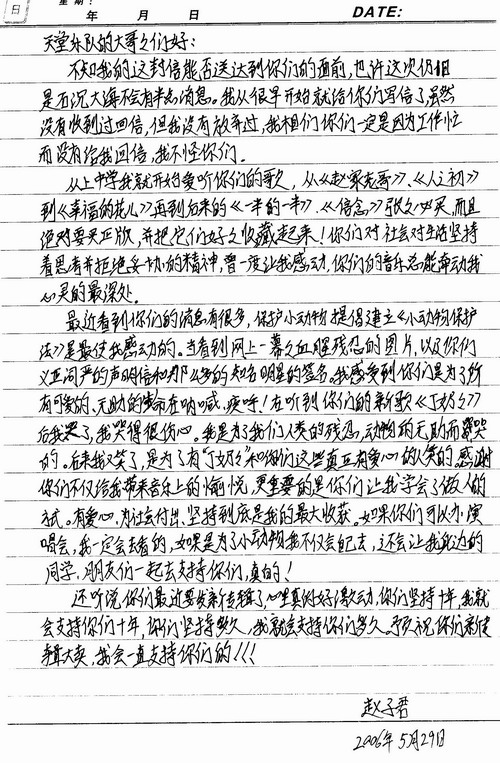 日
星期：
年 月 日 DATE:
天堂乐队的大哥们好：
不知我的这封信能否送达到你们的面前，也许这次仍旧
是石沉大海不会有半点消息。我从很早开始就给你们写信了虽然
没有收到过回信，但我没有放弃过，我相信你们一定是因为工作忙
而没有给我回信，我不怪你们。
从上中学我就开始爱听你们的歌，从《赵家老哥》、《人之初》
到《幸福的花儿》再到后来的《一半的一半》、《信念》张张必买，而且
绝对要买正版，并把它们好好收藏起来！你们对社会对生活坚持
着思考并拒绝妥协的精神，曾一度让我感动，你们的音乐总能牵动我
心灵的最深处。
最近看到你们的消息有很多，保护小动物提倡建立《小动物保护
法》是最使我感动的。当看到网上一幕幕血腥残忍的图片，以及你们
义正词严的声明信和那么多的知名明星的签名。我感受到你们是为了所
有可爱的、无助的生命在呐喊、疾呼！在听到你们的新歌《丁奶奶》
后我哭了，我哭得很伤心。我是为了我们人类的残忍，动物的无助而哭
的。后来我又笑了，是为了有“丁奶奶”和你们这些真正有爱心的人笑的。感谢
你们不仅给我带来音乐上的愉悦，更重要的是你们让我学会了做人的
方式。有爱心，为社会付出，坚持到底是我的最大收获。如果你们可以办演
唱会，我一定会去看的，如果是为了小动物我不仅会自己去，还会让我身边的
同学，朋友们一起去支持你们，真的！
还听说你们最近要发新专辑了，心里真的好激动，你们坚持十年，我就
会支持你们十年，你们坚持多久，我就会支持你们多久。预祝你们新专
辑大卖，我会一直支持你们的！！！
赵子君
2006年5月29日